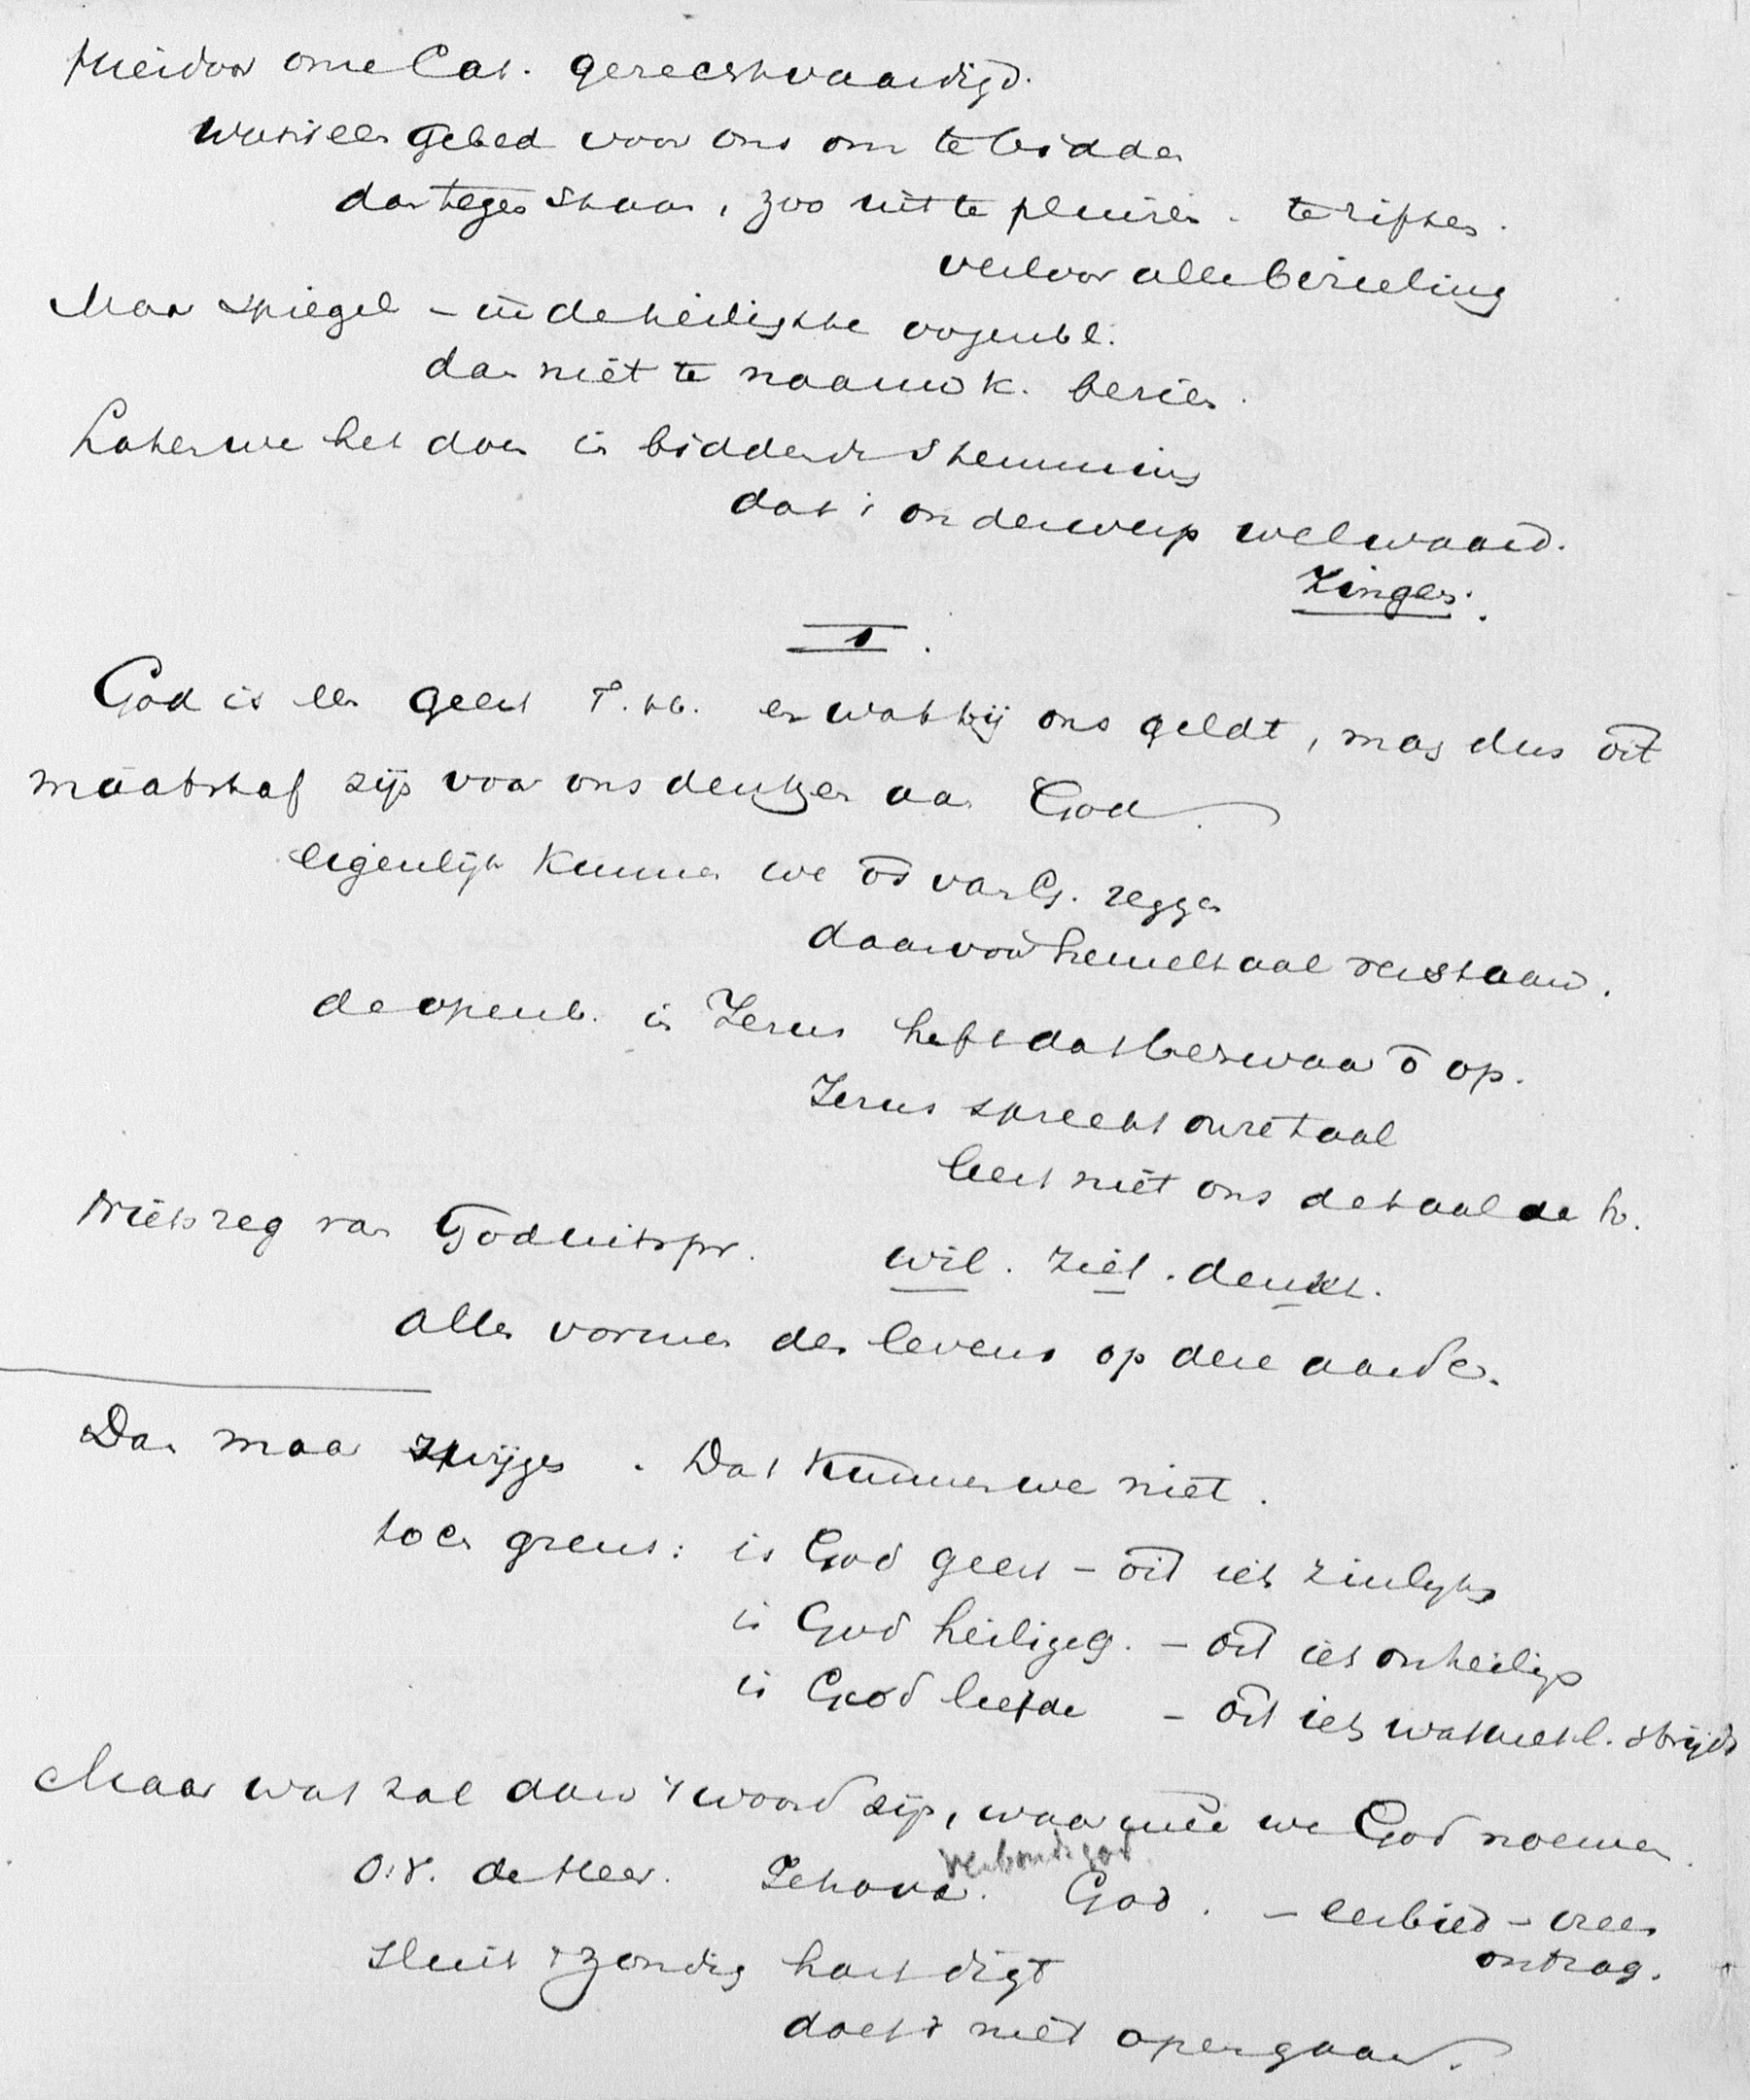 Hierdoor onze Cat. gerechtvaardigd.
Was is een gebed voor ons om te bidden
daartegen staan, zoo uit te pluizen. te ziften.
verloor alle bezieling
Maar spiegel - in de heiligste oogenbl.
dan niet te naauwk. bezien.
Laten we het doen in biddende stemming
dat is onderwerp wel waard.
Zingen.
I.
God is een geest T. H. en wat bij ons geldt, mag dus niet
maatstaf zijn voor ons denken aan God.
eigenlijk kunnen we niets van G. zeggen
daarvoor hemeltaal verstaan.
de openb. in Jezus heft dat bezwaar niet op.
Jezus spreekt onze taal
leert niet ons de taal de h.
Niets zeg van God uitspr. wil. ziet. denkt.
allen vormen des levens op deze aarde.
Dan maar zwijgen. Dat kunnen we niet.
toch grens: is God geest - niet iets zinlijks
is God heilige G. - niet iets onheiligs
is God liefde - niet iets wat met l. strijdt
Maar wat zal dan 't woord zijn, waarmee we God noemen.
verbondsgod
O.V. de Heer. Jehova. God. - eerbied - vrees
ontzag.
sluit 't zondig hart digt
doet 't niet opengaan.